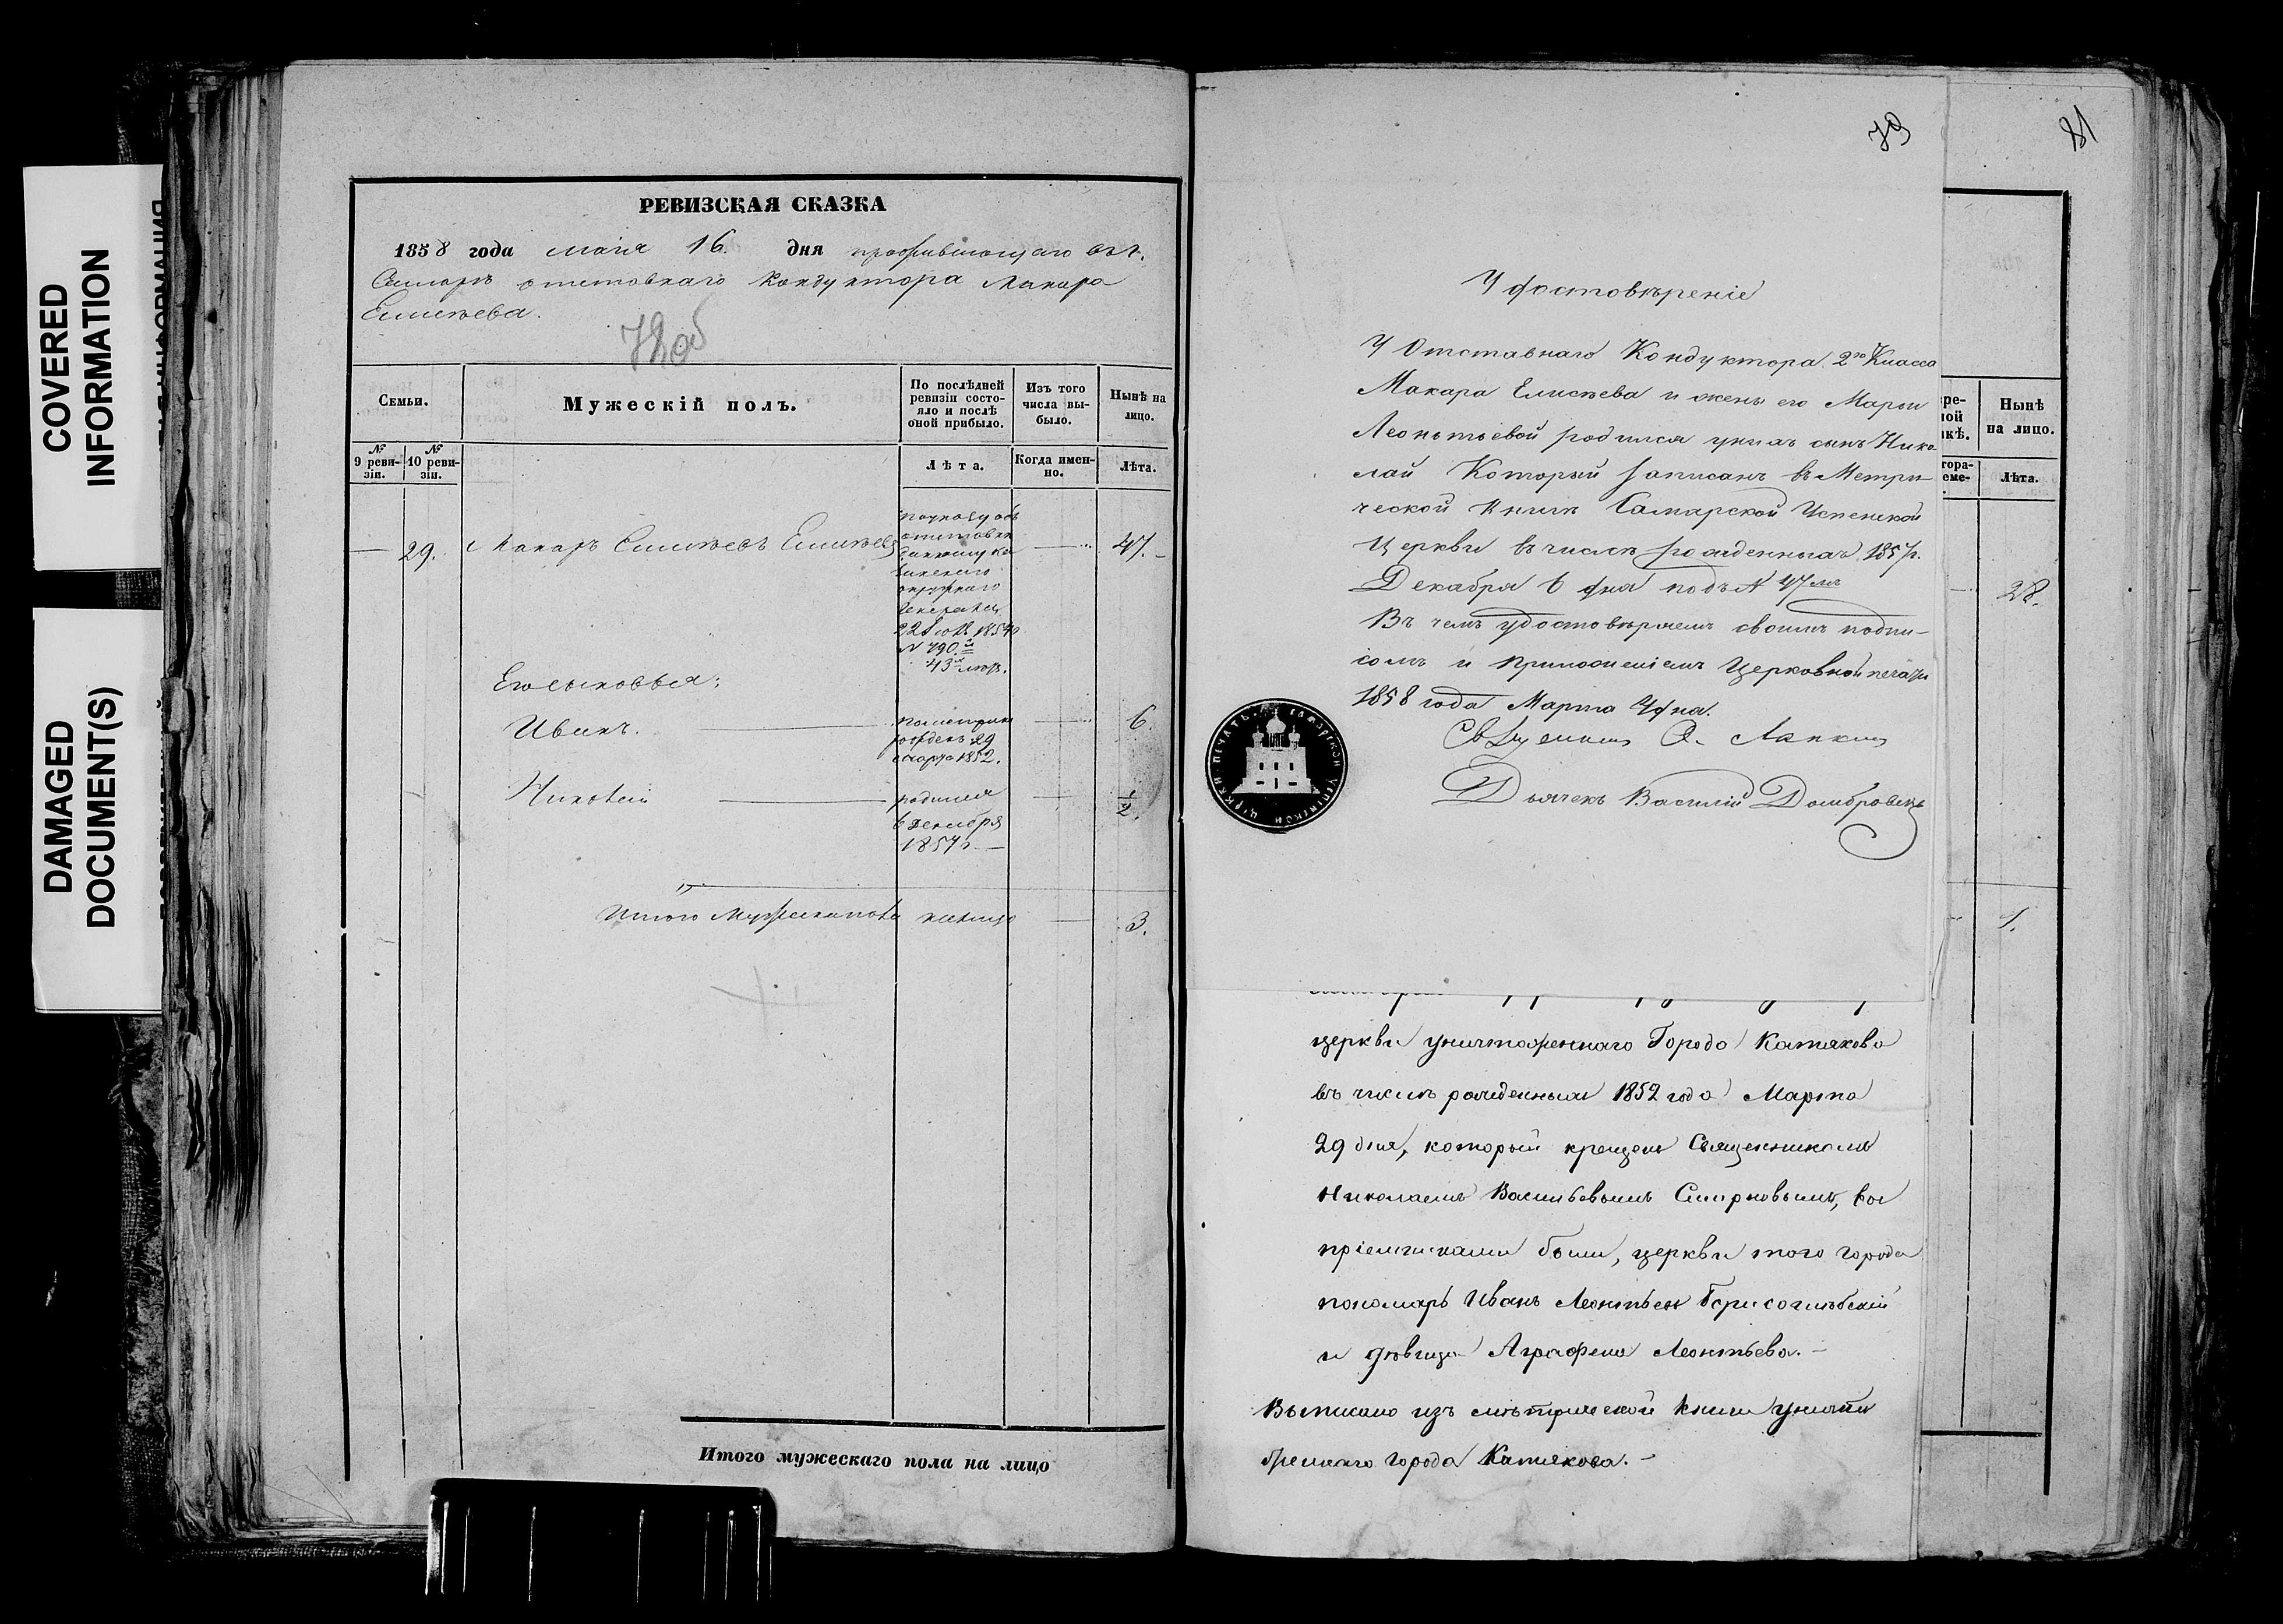 COVERED
INFORMATION
DAMAGED
DOCUMENT(S)
РЕВИЗСКАЯ СКАЗКА
1858 года маія 16. дня проживающаго въ г.
Самарѣ отставнаго Кондуктора Макара
Елисѣева.
78 об
Семьи.
Мужескій полъ.
По послѣдней
ревизіи состо-
яло и послѣ
оной прибыло.
Изъ того
числа вы-
было.
Нынѣ на
лицо.
№
9 реви-
зіи.
№
10 реви-
зіи.
Лѣта.
Когда имен-
но.
Лѣта.
29. Макаръ Елисѣевъ Елисѣевъ
47.
Его сыновья:
Иванъ.
рожденъ 29
марта 1852.
6.
Николай
родился
6 декабря
1857 г.
1/2.
Итого мужеска пола на лицо 3.
Итого мужескаго пола на лицо
79
81
Удостовѣреніе
У Отставнаго Кондуктора 2го Класса
Макара Елисѣева и жены его Марьи
Леонтьевой родился у нихъ сынъ Нико-
лай Который записанъ въ Метри-
ческой книгѣ Самарской Успенской
Церкви въ числѣ рожденныхъ 1857 г.
Декабря 6 дня подъ № 47мъ
Въ чемъ удостовѣряемъ своимъ подпи-
сомъ и приложеніемъ Церковной печати
1858 года Марта 4 дня.
Священникъ Лапкинъ
Дьячекъ Василій Домбровскій
ре-
ной
кѣ.
гора-
еме-
Нынѣ
на лицо.
Лѣта.
28.
1.
церкви уничтоженнаго Города Катякова
въ числѣ рожденныхъ 1852 года Марта
29 дня, который крещенъ Священникомъ
Николаемъ Васильевымъ Смирновымъ, вос
пріемниками были, церкви того города
пономарь Иванъ Леонтьевъ Борисоглѣбскій
и дѣвица Аграфена Леонтьева.-
Выписано изъ метрической книги уничто
женнаго города Катякова.-